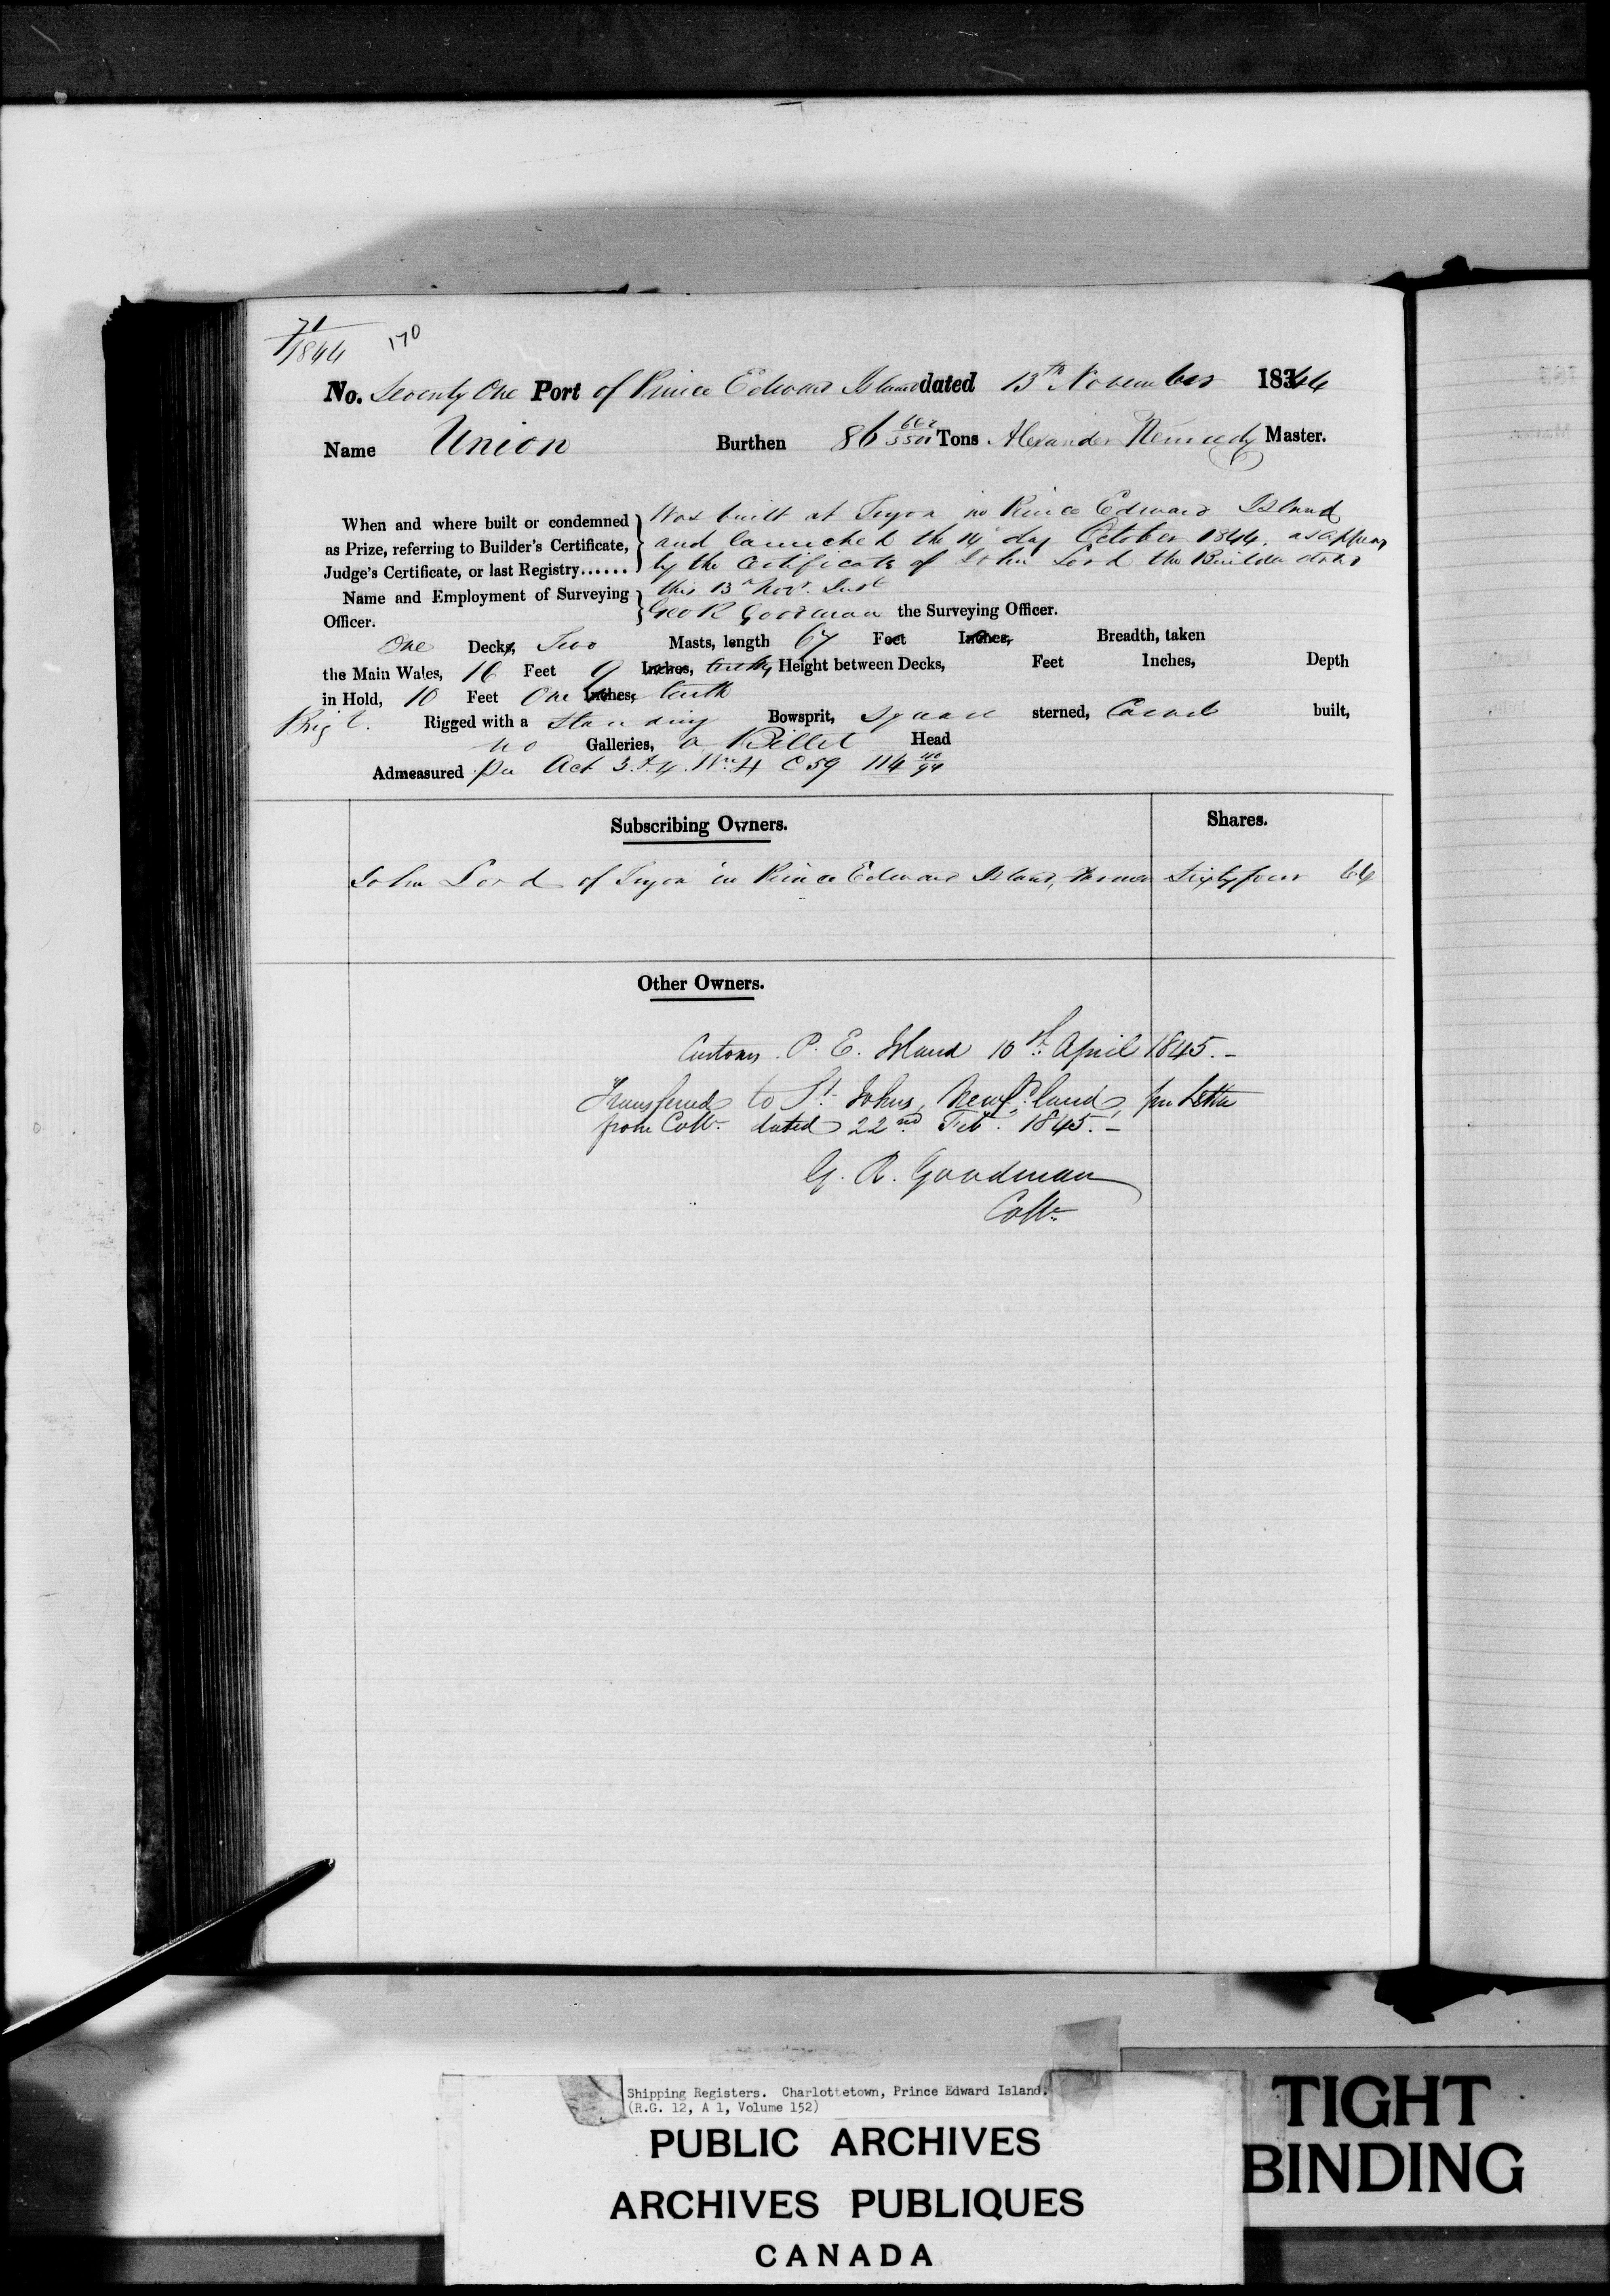 71
1844
170
No. Seventy One Port of Prince Edward Island dated 13th November 1844
Name Union Burthen 86 662/3500 Tons Alexander Kennedy Master.
When and where built or condemned as Prize, referring to Builder's Certificate, Judge's Certificate, or last Registry......
Was built at Tryon in Prince Edward Island
and launched the 14 day October 1844. as appears
by the Certificate of John Lord the Builder dated
this 13th Novr. Inst
Name and Employment of Surveying Officer.
Geo R Goodman the Surveying Officer.
One Decks, Two Masts, length 67 Feet Inches, Breadth, taken
the Main Wales, 16 Feet 9 Inches, tenths, Height between Decks, Feet Inches, Depth
in Hold, 10 Feet One Inches, tenth
Brigt. Rigged with a Standing Bowsprit, Square sterned, Carvel built,
no Galleries, a Billet Head
Admeasured per Act 3 & 4 Wm 4 C 59 114
Subscribing Owners. Shares.
John Lord of Tryon in Prince Edward Island, Sixty four 64
Other Owners.
Customs P. E. Island 10th April 1845.-
Transferred to St. Johns, Newfdland, per Letter
from Collr. dated 22nd Feb. 1845.-
G. R. Goodman
Collr.
Shipping Registers. Charlottetown, Prince Edward Island.
(R.G. 12, A 1, Volume 152)
PUBLIC ARCHIVES
ARCHIVES PUBLIQUES
CANADA
TIGHT
BINDING